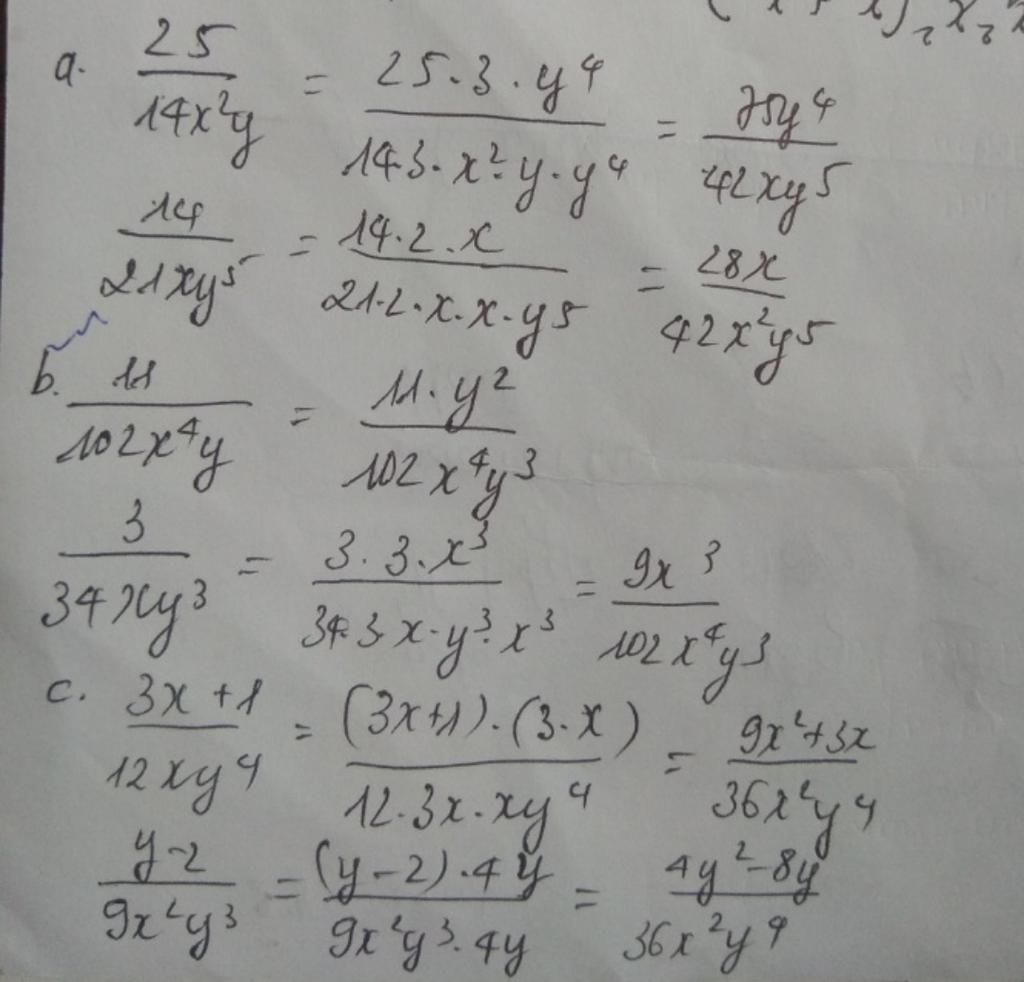 a. 25/14x²y = 25·3·y⁴/143·x²·y·y⁴ = 75y⁴/42xy⁵
14/21xy⁵ = 14·2·x/21·2·x·x·y5 = 28x/42x²y5
b. 11/102x⁴y = 11·y²/102x⁴y³
3/34xy³ = 3·3·x³/34·3·x·y³·x³ = 9x³/102x⁴y3
c. 3x+1/12xy4 = (3x+1)·(3·x)/12·3x·xy⁴ = 9x²+3x/36x²y4
y-2/9x²y³ = (y-2)·4y/9x²y³·4y = 4y²-8y/36x²y⁴